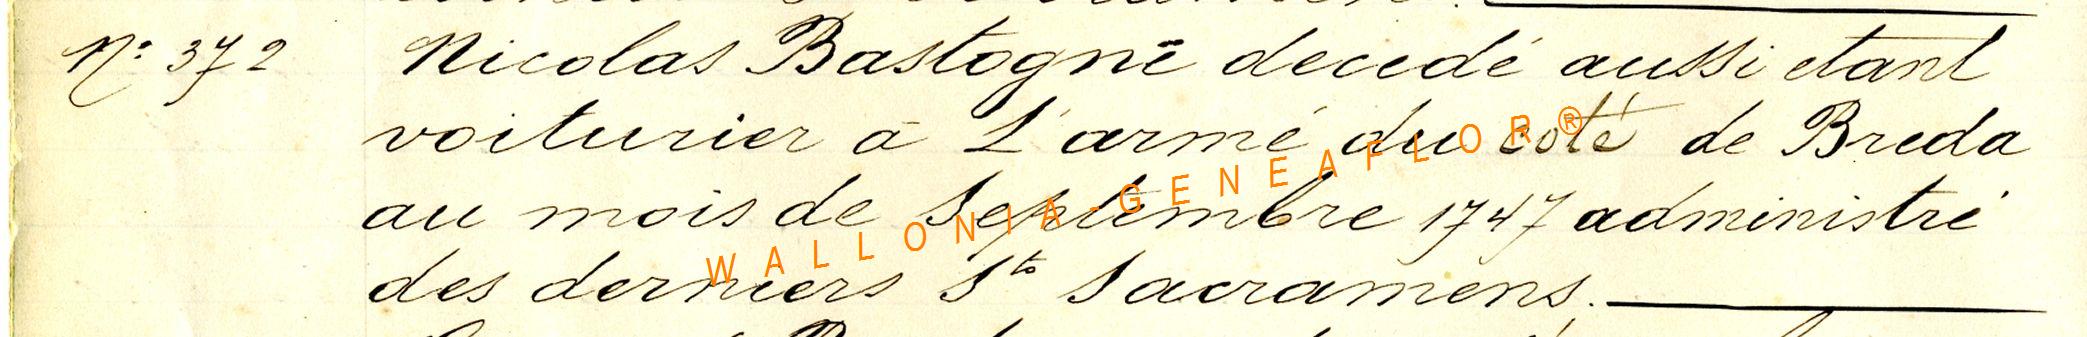 N° 372 Nicolas Bastogne decedé aussi etant
voiturier a L'armé du coté de Breda
au mois de Septembre 1747 administré
des derniers Sts Sacramens.
WALLONIA-GENEAFLOR®